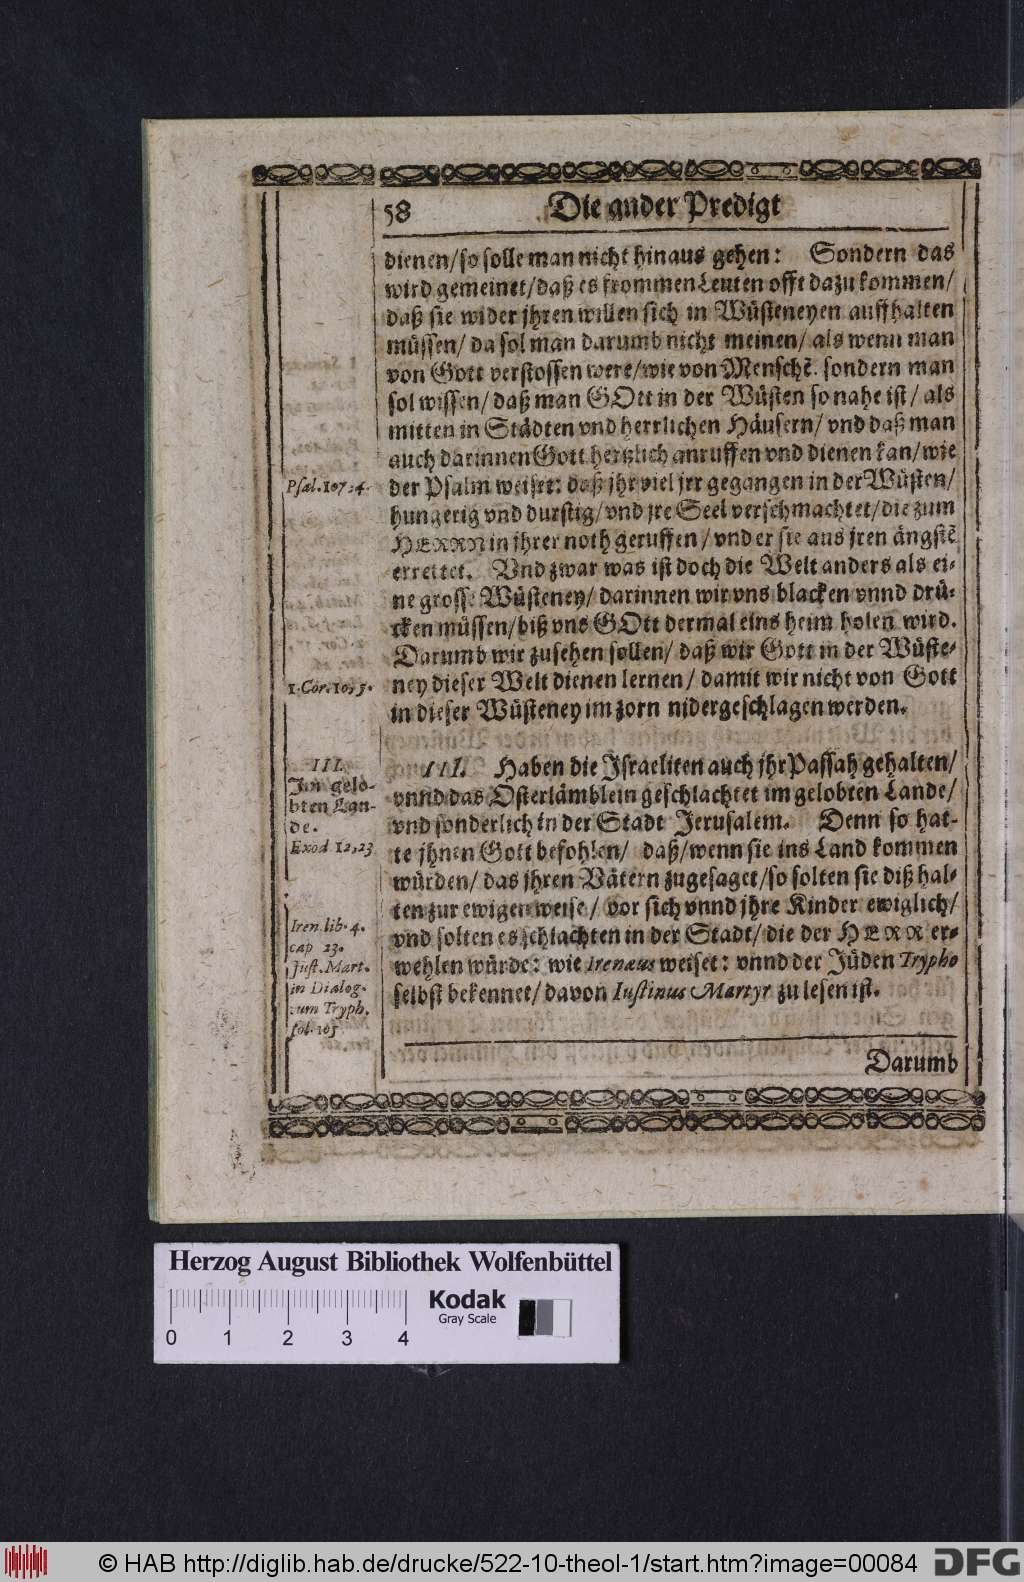 58 Die ander Predigt
dienen/ so solle man nicht hinaus gehen: Sondern das
wird gemeinet/ daß es frommen Leuten offt dazu kommen/
daß sie wider jhren willen sich in Wüsteneyen auffhalten
müssen/ da sol man darumb nicht meinen/ als wenn man
von Gott verstossen were/ wie von Menschẽ. sondern man
sol wissen/ daß man GOtt in der Wüsten so nahe ist/ als
mitten in Städten vnd herrlichen Häusern/ vnd daß man
auch darinnen Gott hertzlich anruffen vnd dienen kan/ wie
Psal. 107. 4.
der Psalm weiset: daß jhr viel jrr gegangen in der Wüsten/
hungerig vnd durstig/ vnd jre Seel verschmachtet/ die zum
HERRN in jhrer noth geruffen/ vnd er sie aus jren ängstẽ
errettet. Vnd zwar was ist doch die Welt anders als ei-
ne grosse Wüsteney/ darinnen wir vns blacken vnnd drü-
cken müssen/ biß vns GOtt dermal eins heim holen wird.
Darumb wir zusehen sollen/ daß wir Gott in der Wüste-
1. Cor. 10, 5.
ney dieser Welt dienen lernen/ damit wir nicht von Gott
in dieser Wüsteney im zorn nidergeschlagen werden.
III.
Jm gelo-
bten Lan-
de.
Exod 12, 23
III. Haben die Jsraeliten auch jhr Passah gehalten/
vnnd das Osterlämblein geschlachtet im gelobten Lande/
vnd sonderlich in der Stadt Jerusalem. Denn so hat-
te jhnen Gott befohlen/ daß/ wenn sie ins Land kommen
würden/ das jhren Vätern zugesaget/ so solten sie diß hal-
ten zur ewigen weise/ vor sich vnnd jhre Kinder ewiglich/
Iren. lib. 4.
cap 23.
Just. Mart.
in Dialog.
cum Tryph.
fol. 105
vnd solten es schlachten in der Stadt/ die der HERR er-
wehlen würde: wie Irenæus weiset: vnnd der Jüden Trypho
selbst bekennet/ davon Iustinus Martyr zu lesen ist.
Darumb
Herzog August Bibliothek Wolfenbüttel
Kodak
Gray Scale
0 1 2 3 4
© HAB http://diglib.hab.de/drucke/522-10-theol-1/start.htm?image=00084
DFG